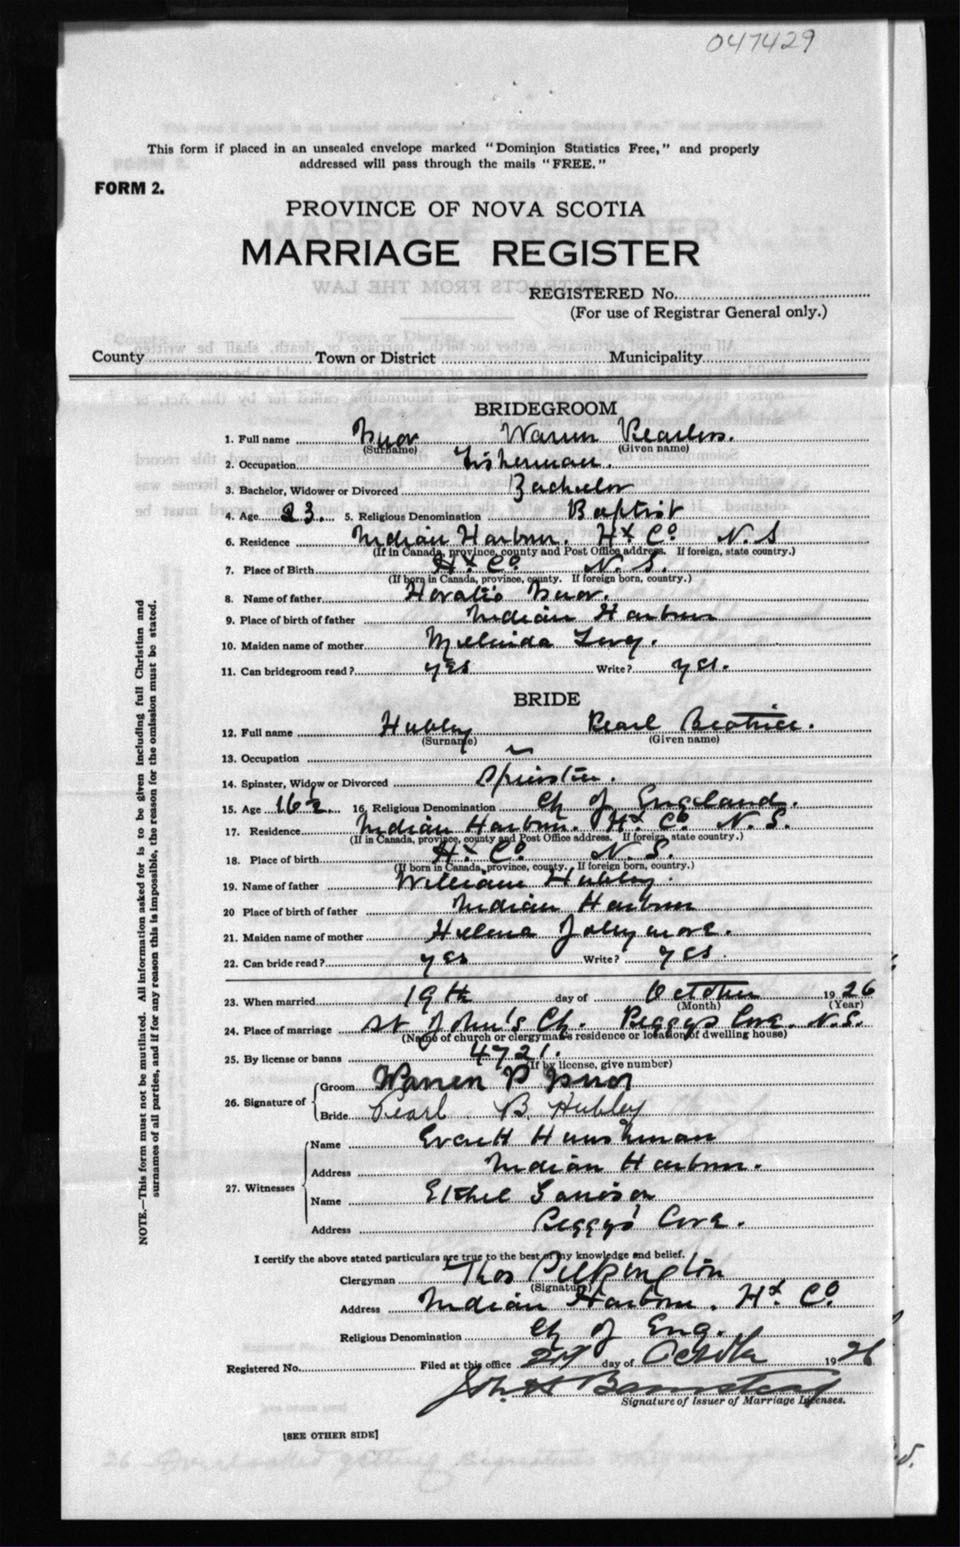 047429
This form if placed in an unsealed envelope marked "Dominion Statistics Free," and properly
addressed will pass through the mails "FREE."
FORM 2.
PROVINCE OF NOVA SCOTIA
MARRIAGE REGISTER
REGISTERED No.
(For use of Registrar General only.)
County Town or District Municipality
BRIDEGROOM
1. Full name Isnor Warren
(Surname) (Given name)
2. Occupation Fisherman.
3. Bachelor, Widower or Divorced Bachelor
4. Age 23. 5. Religious Denomination Baptist
6. Residence Indian Harbour. Hx Co N.S
(If in Canada, province, county and Post Office address. If foreign, state country.)
7. Place of Birth Hx Co N.S.
(If born in Canada, province, county. If foreign born, country.)
8. Name of father Horatio Isnor.
9. Place of birth of father Indian Harbour
10. Maiden name of mother Melinda Levy.
11. Can bridegroom read? yes Write? yes.
BRIDE
12. Full name Hubley Pearl Beatrice.
(Surname) (Given name)
13. Occupation
14. Spinster, Widow or Divorced Spinster.
15. Age 16½ 16. Religious Denomination Ch of England.
17. Residence Indian Harbour. Hx Co N.S.
(If in Canada, province, county and Post Office address. If foreign, state country.)
18. Place of birth Hx Co N.S.
(If born in Canada, province, county. If foreign born, country.)
19. Name of father William Hubley.
20 Place of birth of father Indian Harbour
21. Maiden name of mother Helena
22. Can bride read? yes Write? yes.
23. When married 19th day of October 1926
(Month) (Year)
24. Place of marriage St John's Ch. Peggys Cove. N.S.
(Name of church or clergyman's residence or location of dwelling house)
25. By license or banns 4721.
(If by license, give number)
26. Signature of Groom Warren P Isnor
Bride Pearl B. Hubley
27. Witnesses
Name Everett
Address Indian Harbour.
Name Ethel Garrison
Address Peggys Cove.
I certify the above stated particulars are true to the best of my knowledge and belief.
Clergyman Thos Pilkington
(Signature)
Address Indian Harbour. Hx Co.
Religious Denomination Ch of Eng.
Registered No. Filed at this office day of October 1926
Signature of Issuer of Marriage Licenses.
[SEE OTHER SIDE]
NOTE.—This form must not be mutilated. All information asked for is to be given including full Christian and
surnames of all parties, and if for any reason this is impossible, the reason for the omission must be stated.